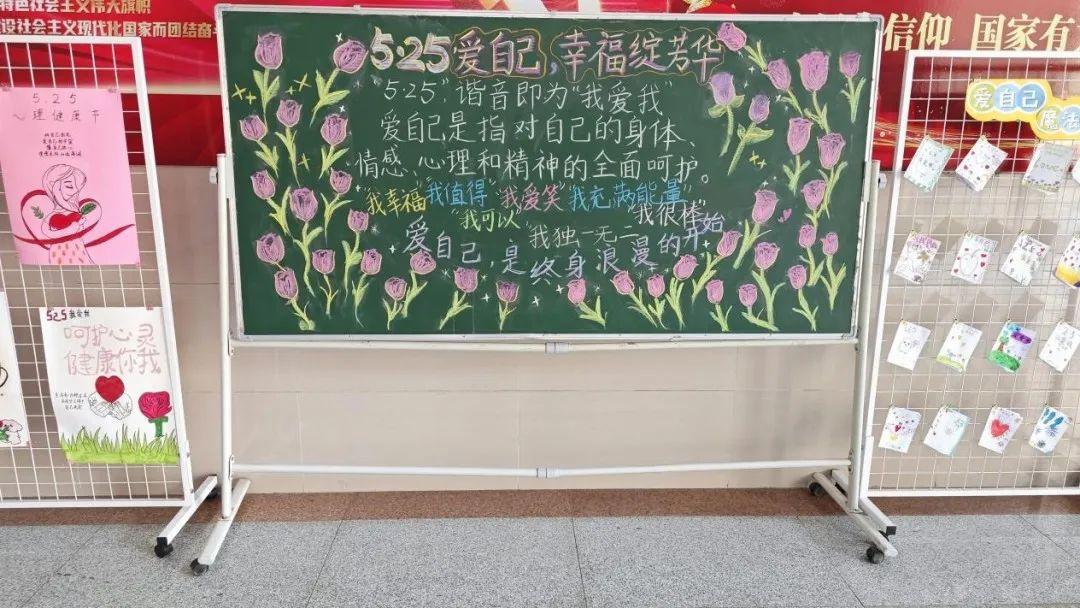 特色社会主义伟大旗帜
设社会主义现代化国家而团结奋斗
信仰 国家有
5·25爱自己,幸福绽芳华
5·25”,谐音即为“我爱我”
爱自己是指对自己的身体、
情感、心理和精神的全面呵护。
“我幸福”“我值得”“我爱笑”“我充满能量”
“我可以”“我独一无二”“我很棒”
爱自己,是终身浪漫的开始
5.25
心理健康节
525我爱我
呵护心灵
健康你我
爱自己
魔法